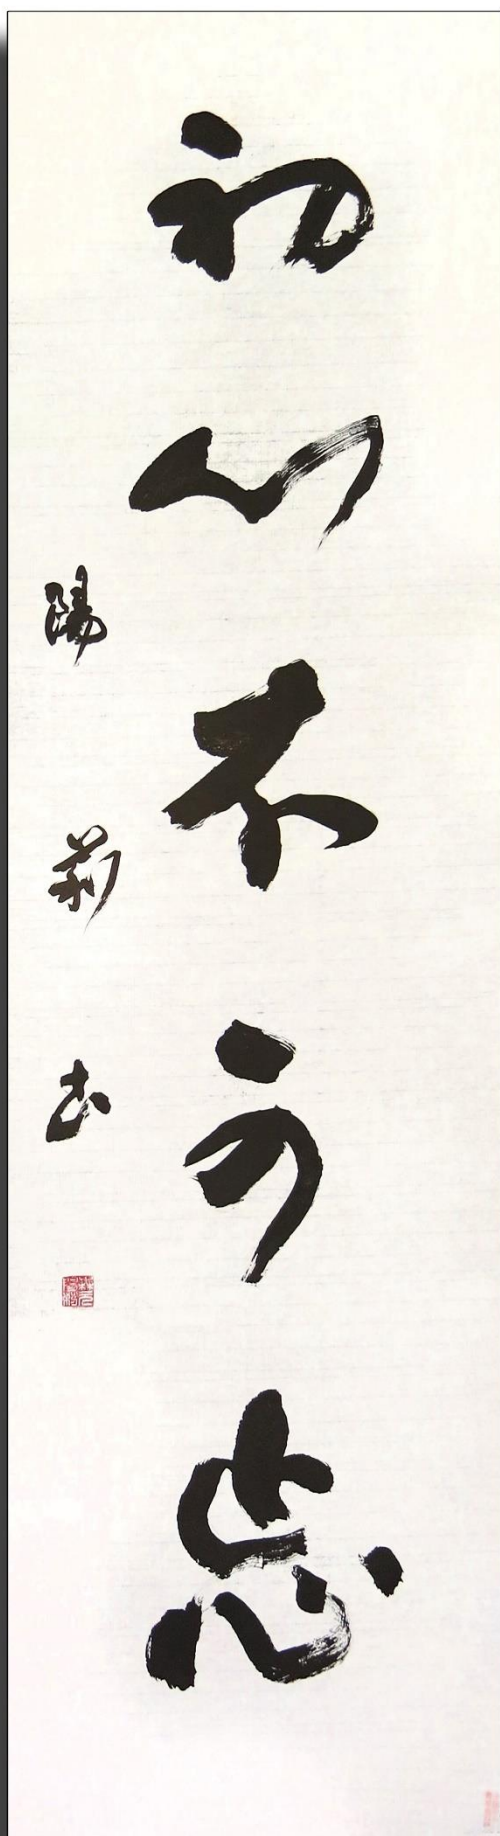 初心不可忘
陽莉書